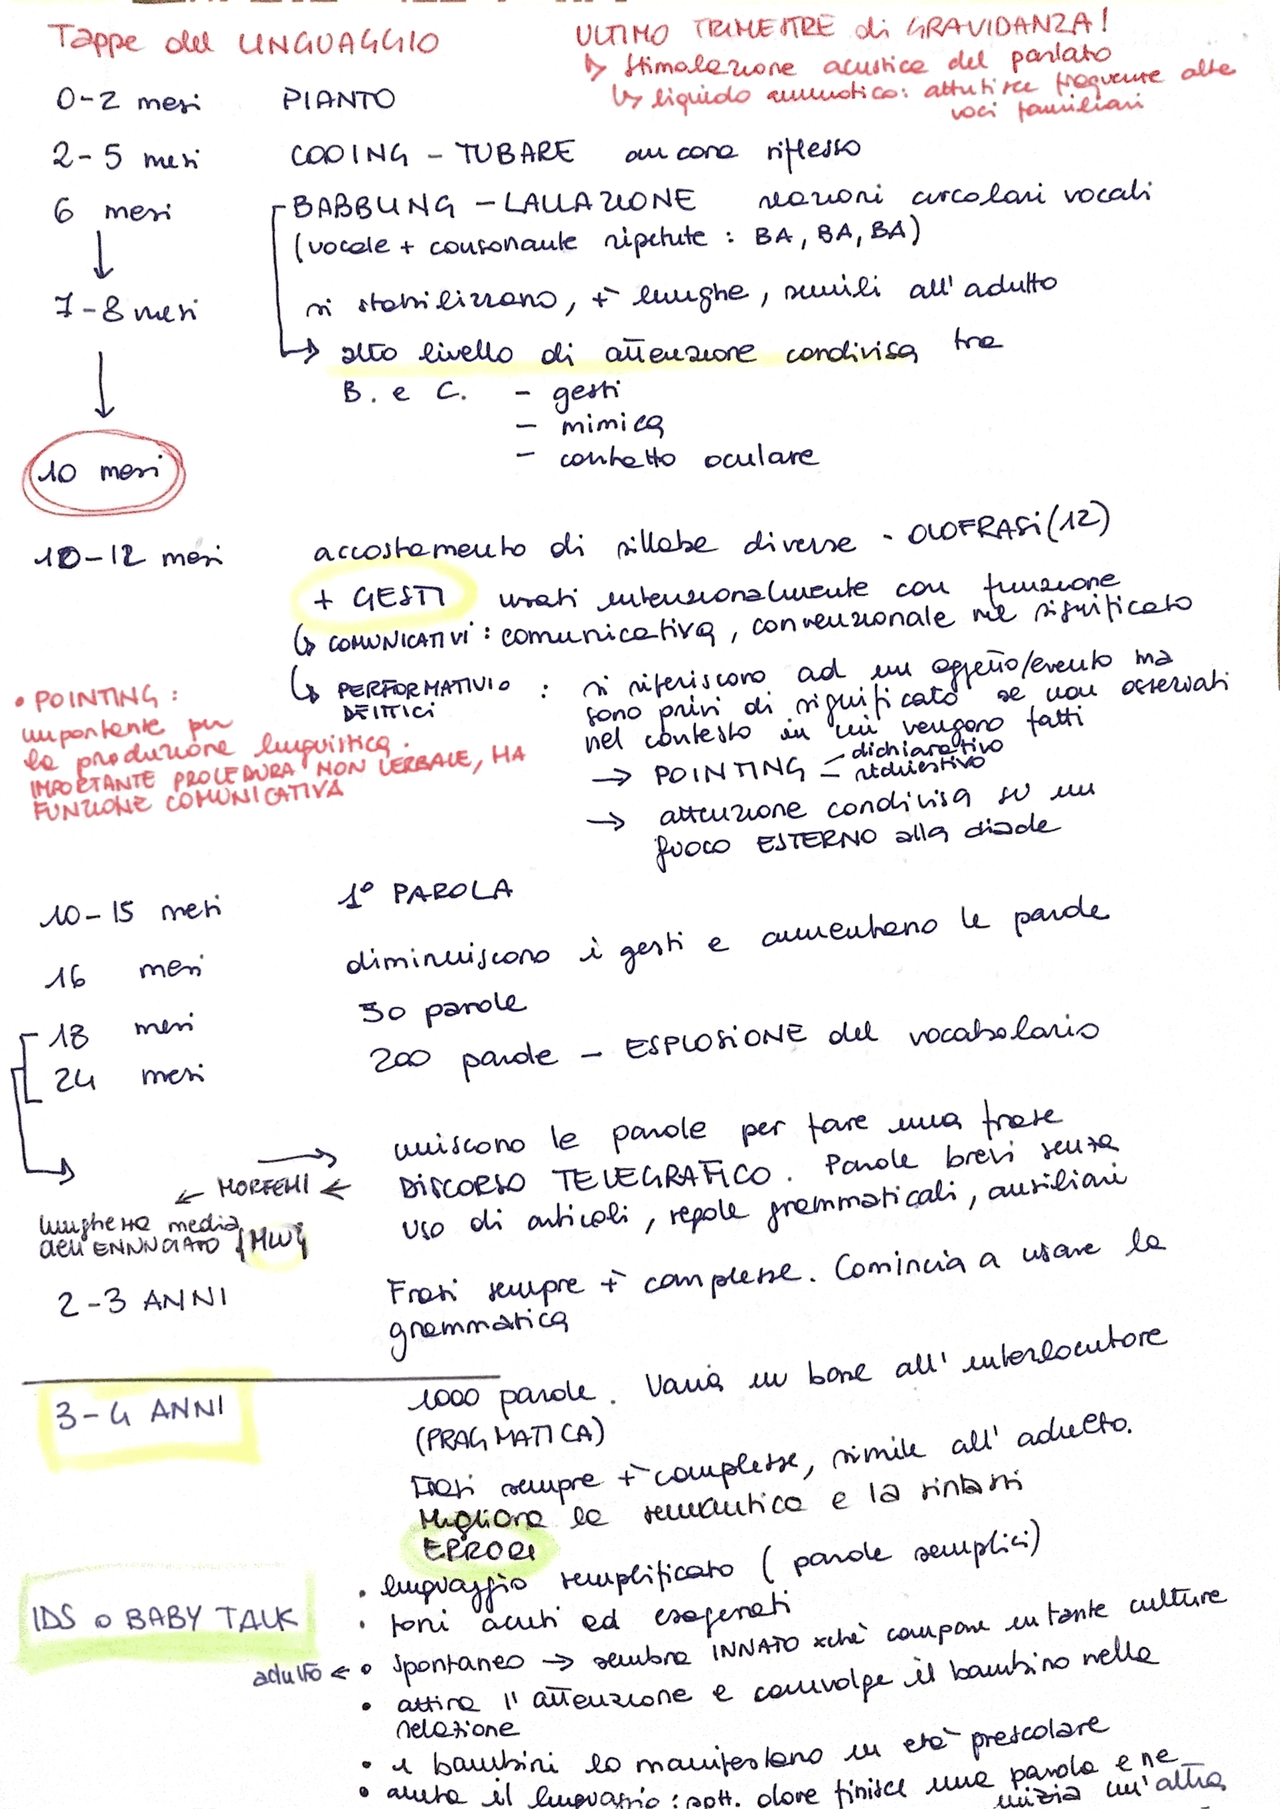 Tappe del LINGUAGGIO
ULTIMO TRIMESTRE di GRAVIDANZA!
↳ stimolazione acustica del parlato
↳ liquido amniotico: attutisce frequenze alte
voci familiari
0-2 mesi PIANTO
2-5 mesi COOING - TUBARE ancora riflesso
6 mesi BABBLING - LALLAZIONE reazioni circolari vocali
(vocale + consonante ripetute: BA, BA, BA)
7-8 mesi si stabilizzano, + lunghe, simili all'adulto
→ alto livello di attenzione condivisa tra
B. e C. - gesti
- mimica
- contatto oculare
10 mesi
10-12 mesi accostamento di sillabe diverse - OLOFRASI (12)
+ GESTI usati intenzionalmente con funzione
↳ COMUNICATIVI: comunicativa, convenzionale nel significato
↳ PERFORMATIVI O : si riferiscono ad un oggetto/evento ma
DEITTICI sono privi di significato se non osservati
nel contesto in cui vengono fatti
→ POINTING - dichiarativo
- richiestivo
→ attenzione condivisa su un
fuoco ESTERNO alla diade
• POINTING:
importante per
la produzione linguistica.
IMPORTANTE PROCEDURA NON VERBALE, HA
FUNZIONE COMUNICATIVA
10-15 mesi 1° PAROLA
16 mesi diminuiscono i gesti e aumentano le parole
18 mesi 50 parole
24 mesi 200 parole - ESPLOSIONE del vocabolario
uniscono le parole per fare una frase
← MORFEMI ← DISCORSO TELEGRAFICO. Parole brevi senza
uso di articoli, regole grammaticali, ausiliari
lunghezza media
dell'ENUNCIATO {MLU}
2-3 ANNI Frasi sempre + complesse. Comincia a usare la
grammatica
3-4 ANNI 1000 parole. Varia in base all'interlocutore
(PRAGMATICA)
Frasi sempre + complesse, simile all'adulto.
Migliora la semantica e la sintassi
ERRORI
IDS o BABY TALK • linguaggio semplificato (parole semplici)
• toni acuti ed esagerati
adulto ← • spontaneo → sembra INNATO xchè compare in tante culture
• attira l'attenzione e coinvolge il bambino nella
relazione
• i bambini lo manifestano in età prescolare
• aiuta il linguaggio: sott. dove finisce una parola e ne
inizia un'altra